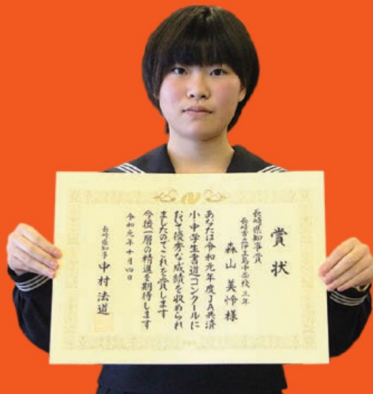 賞状
長崎県知事賞
長崎市立伊王島中学校 三年
森山 美怜 様
あなたは令和元年度JA共済
小・中学生書道コンクールに
おいて優秀な成績を収められ
ましたのでこれを賞します
今後一層の精進を期待します
令和元年十月四日
長崎県知事 中村 法道